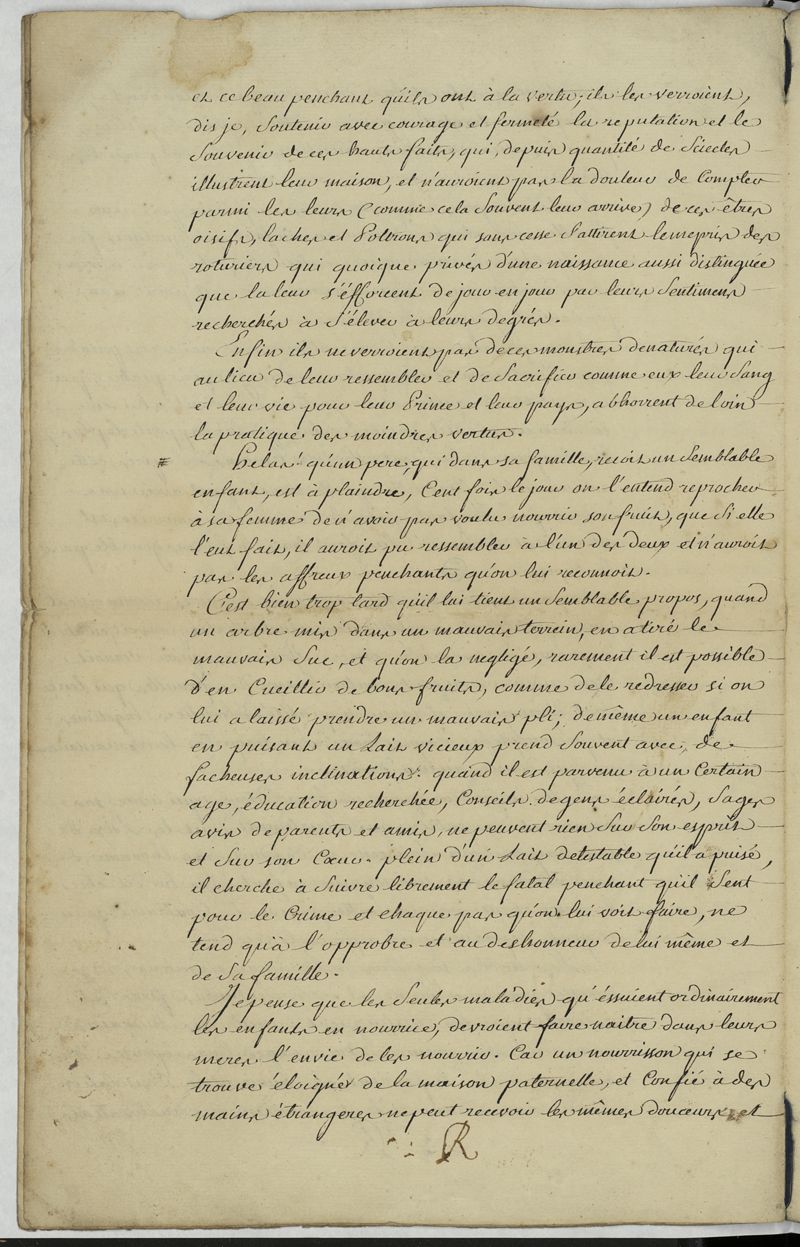 et ce beau penchant qu'ils ont à la vertu; ils les verroient,
dis je, Soutenir avec courage et fermeté la reputation et le
Souvenir de ces hauts faits, qui, depuis quantité de Siecles
illustrent leur maison, et n'auroient pas la douleur de Compter
parmi les leurs (comme cela Souvent leur arrive) de ces êtres
oisifs, laches et Poltrons qui sans cesse S'attirent le mepris des
roturiers qui quoique privés d'une naissance aussi distinguée
que la leur S'efforcent de jour en jour par leurs Sentimens
recherchés à S'élever à leurs degrés.
Enfin ils ne verroient pas de ces monstres denaturés qui
au lieu de leur ressembler et de Sacrifier comme eux leur Sang
et leur vie pour leur Prince et leur pays, abhorrent de loin
la pratique des moindres vertus.
helas! qu'un pere, qui dans sa famille, recoit un Semblable
enfant, est à plaindre, Cent fois le jour on l'entend reprocher
à sa femme de n'avoir pas voulu nourrir son fruit, que Si elle
l'eut fait, il auroit pu ressembler à l'un des deux et n'auroit
pas les affreux penchants qu'on lui reconnoit.
C'est bien trop tard qu'il lui tient un Semblable propos, quand
un arbre mis dans un mauvais terrein, en a tiré le
mauvais Suc, et qu'on la negligé, rarement il est possible
d'en Cueillir de bons fruits, comme de le redresser si on
lui a laissé prendre un mauvais pli; de même un enfant
en puisant un Lait vicieux prend Souvent avec, de
facheuses inclinations. quand il est parvenu à un Certain
age, éducation recherchée, Conseils de gens éclairés, Sages
avis de parents et amis, ne peuvent rien Sur Son esprit
et Sur son Cœur. plein d'un Lait detestable qu'il a puisé,
il cherche à Suivre librement le fatal penchant qu'il Sent
pour le Crime et chaque pas qu'on lui voit faire, ne
tend qu'à l'opprobre et au deshonneur de lui même et
de Sa famille.
Je pense que les Seules maladies qu'éssuient ordinairement
les enfants en nourrice, devroient faire naitre dans leurs
meres l'envie de les nourrir. Car un nourrisson qui se
trouve éloigné de la maison paternelle, et Confié à des
mains étrangeres ne peut recevoir les mêmes douceurs et
R